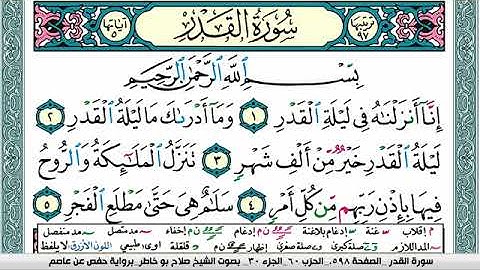 ترتيبها ٩٧ سُورَةُ الْقَدْرِ آياتها ٥
بِسْمِ اللَّهِ الرَّحْمَٰنِ الرَّحِيمِ
إِنَّا أَنزَلْنَاهُ فِي لَيْلَةِ الْقَدْرِ ١ وَمَا أَدْرَاكَ مَا لَيْلَةُ الْقَدْرِ ٢
لَيْلَةُ الْقَدْرِ خَيْرٌ مِّنْ أَلْفِ شَهْرٍ ٣ تَنَزَّلُ الْمَلَائِكَةُ وَالرُّوحُ
فِيهَا بِإِذْنِ رَبِّهِم مِّن كُلِّ أَمْرٍ ٤ سَلَامٌ هِيَ حَتَّىٰ مَطْلَعِ الْفَجْرِ ٥
م إقلاب غنة إدغام بلاغنة إدغام إخفاء مد متصل مد منفصل
المد اللازم صلة كبرى صلة صغرى إظهار ن م قلقلة طبيعي اللون الأزرق لا يلفظ
سورة القدر _ الصفحة ٥٩٨_ الحزب ٦٠_ الجزء ٣٠_ بصوت الشيخ صلاح بو خاطر _برواية حفص عن عاصم